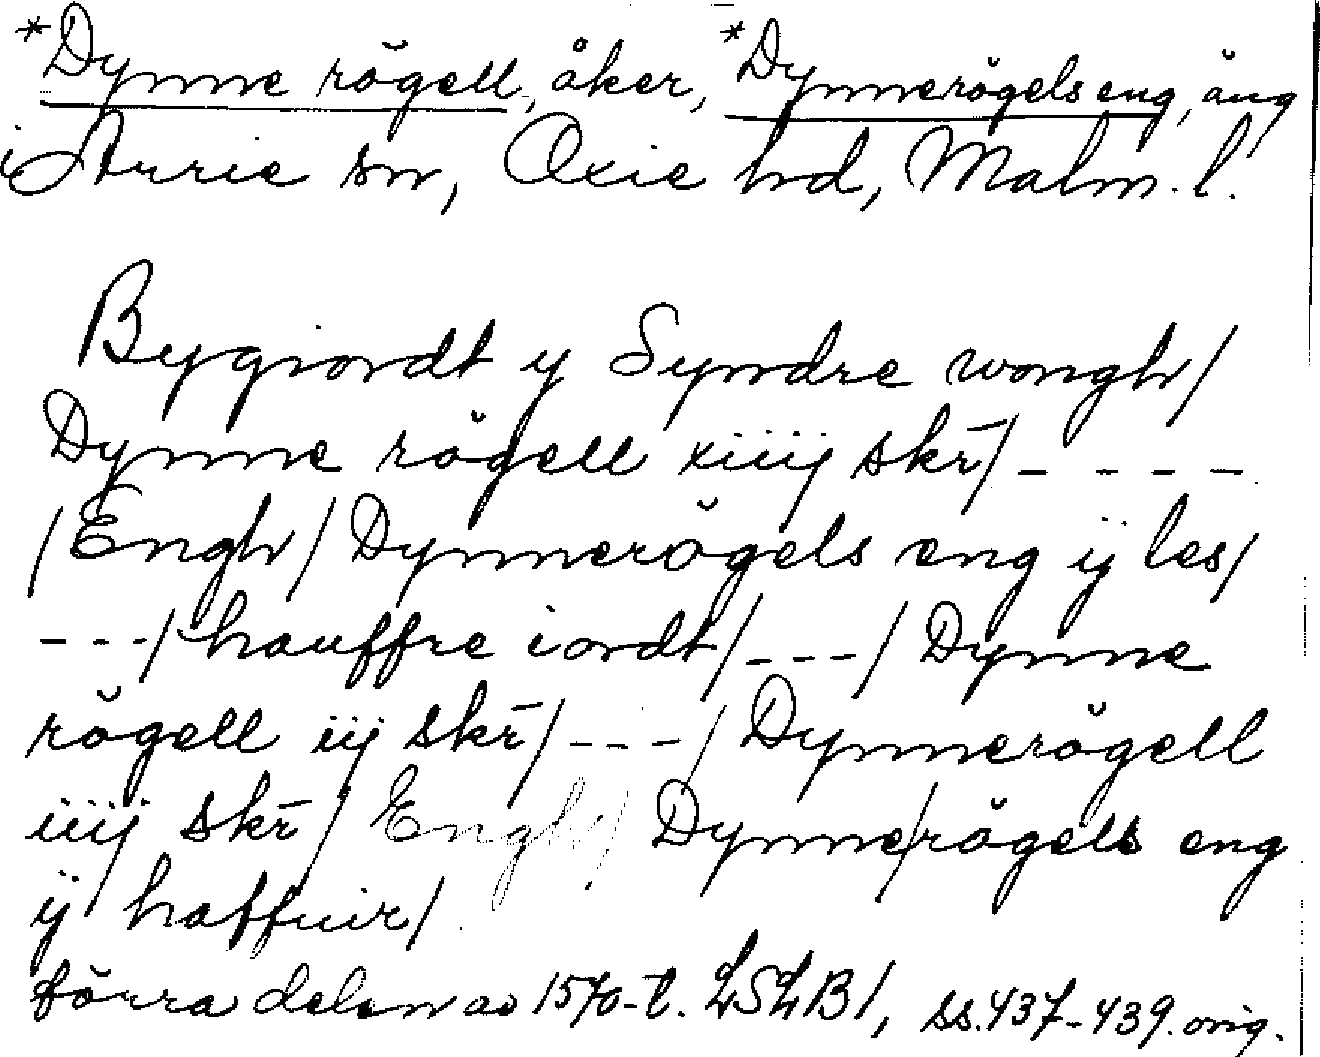 *Dynne rögell, åker, *Dynnerögels eng, äng
i Arrie sn, Oxie hd, Malm. l.
Bygiordt y Syndre wongh/
Dynne rögell xiiij skr̄/ - - - -
/Engh/ Dynnerögels eng ij les/
- - -/ hauffre iordt/ - - -/ Dynne
rögell iij skr̄/ - - -/ Dynnerögell
iiij skr̄/ Engh/ Dynne/rögels eng
ij haffuir/
förra delen av 1570-t. LSLB1, ss. 437-439. orig.